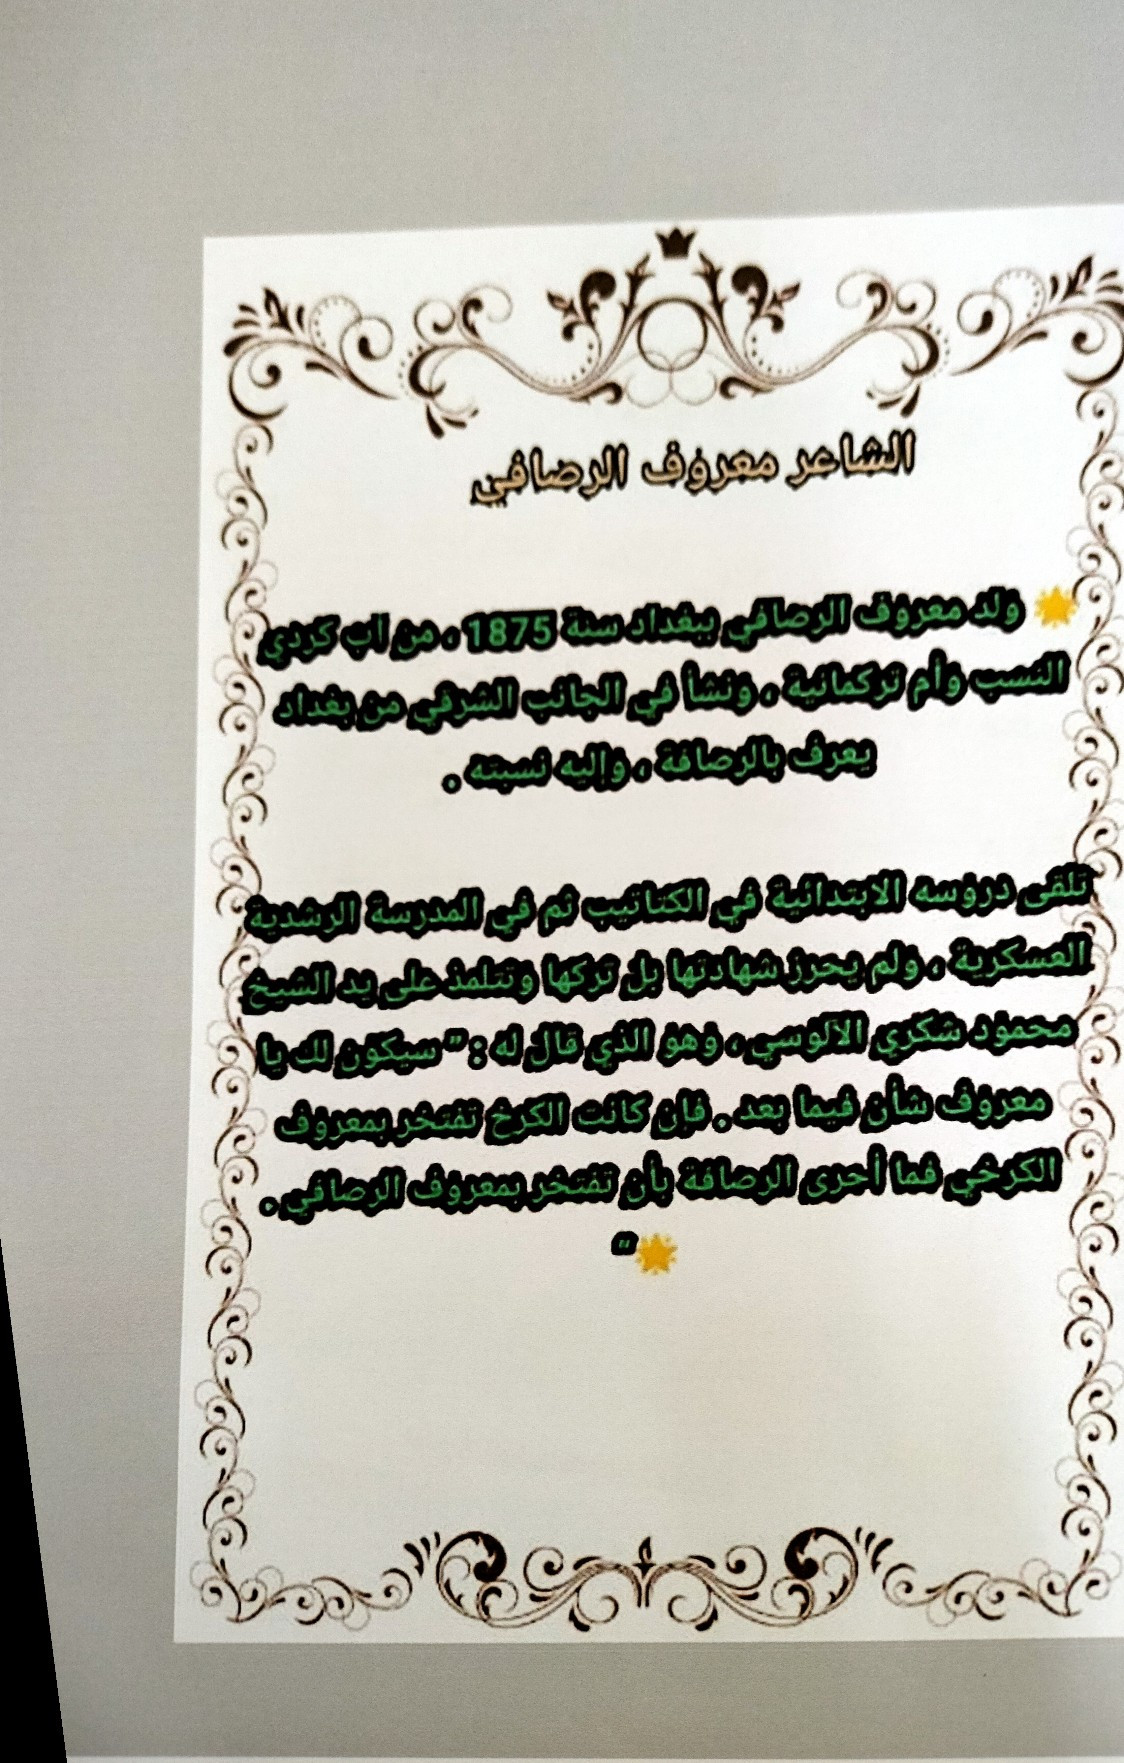 الشاعر معروف الرصافي
ولد معروف الرصافي ببغداد سنة 1875 ، من اب كردي
النسب وأم تركمانية ، ونشأ في الجانب الشرقي من بغداد
يعرف بالرصافة ، وإليه نسبته .
تلقى دروسه الابتدائية في الكتاتيب ثم في المدرسة الرشدية
العسكرية ، ولم يحرز شهادتها بل تركها وتتلمذ على يد الشيخ
محمود شكري الآلوسي ، وهو الذي قال له : " سيكون لك يا
معروف شأن فيما بعد . فإن كانت الكرخ تفتخر بمعروف
الكرخي فما أحرى الرصافة بأن تفتخر بمعروف الرصافي .
"